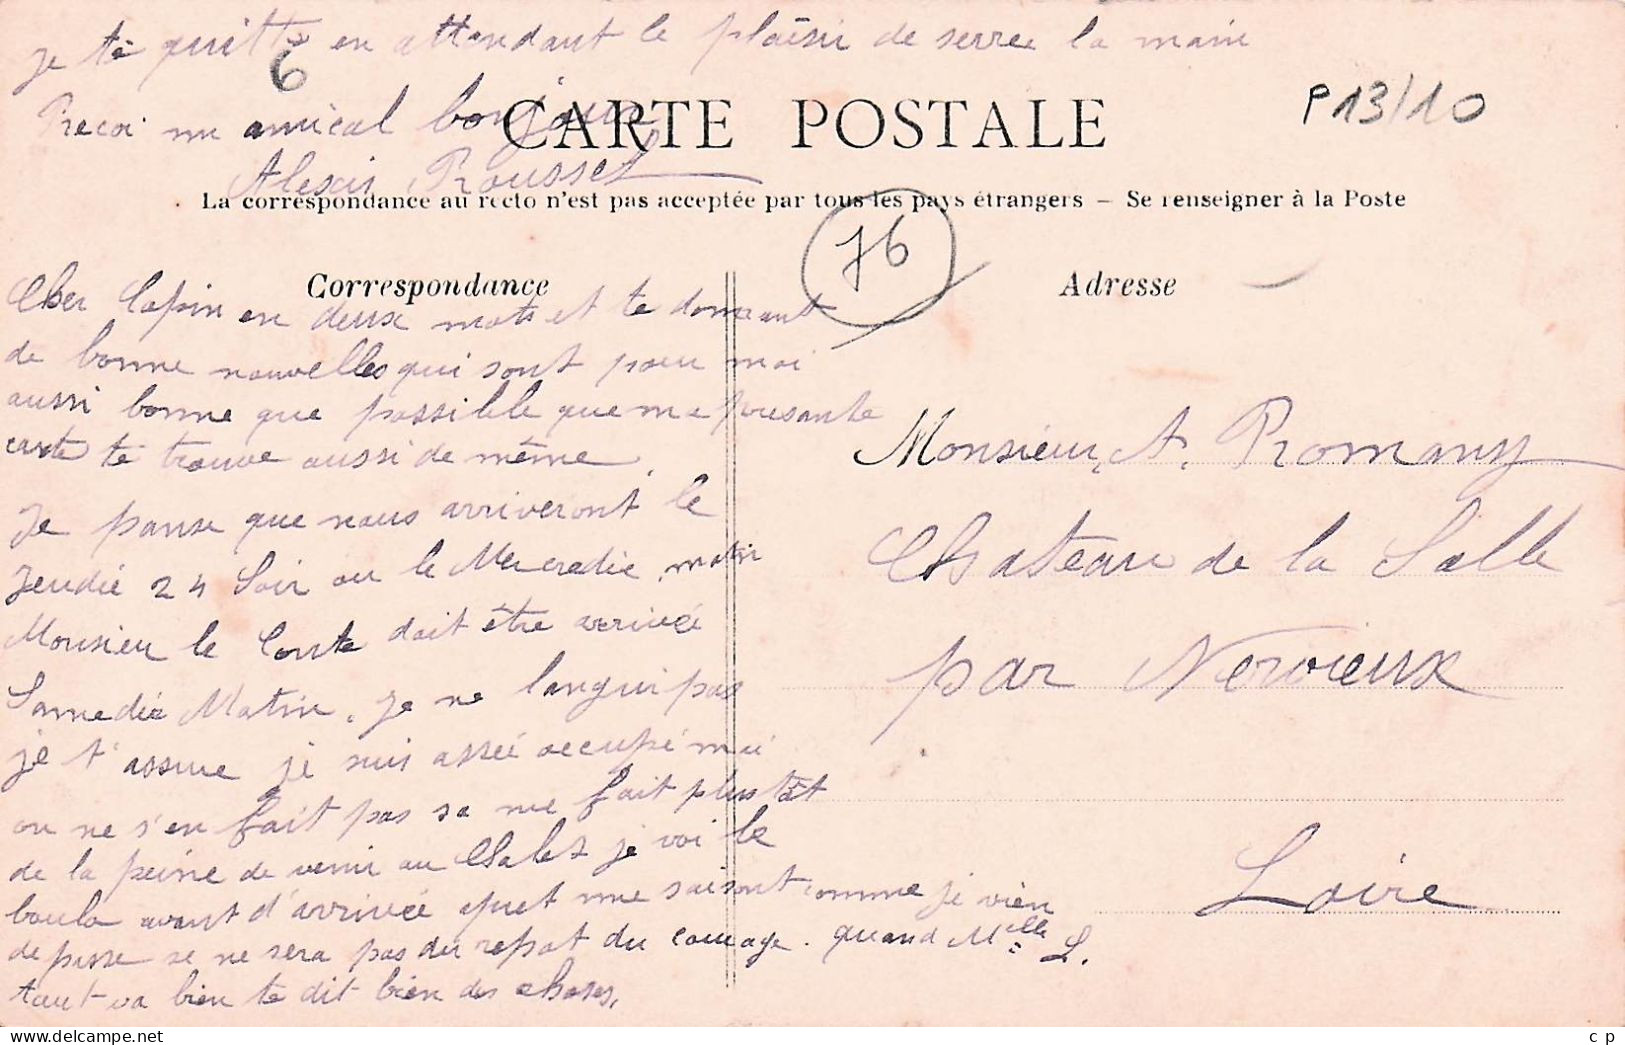 je te quitte en attendant le plaisir de serree la main
6
Recoi un amical bonjour
Alexis Rousset
CARTE POSTALE
P13/10
La correspondance au recto n'est pas acceptée par tous les pays étrangers – Se renseigner à la Poste
76
Correspondance
Adresse
Cher Copin en deux mots et te donnant
de bonne nouvelles qui sont pour moi
aussi bonne que possible que ma presante
carte te trouve aussi de même
Je panse que nous arriveront le
Jeudié 24 Soir ou le Mercredie matin
Monsieu le Conte doit être arrivée
Samedie Matin. Je ne langui pas
je t'assure je suis assée occupé moi
on ne s'en fait pas sa me fait plustôt
de la peine de venir au je voi le
boulo avant d'arrivée comme je vien
de passe se ne sera pas du repot du courage. quand Melle L.
tout va bien te dit bien des choses,
Monsieur, A. Romany
Chateau de la Salle
par Nervieux
Loire
c p